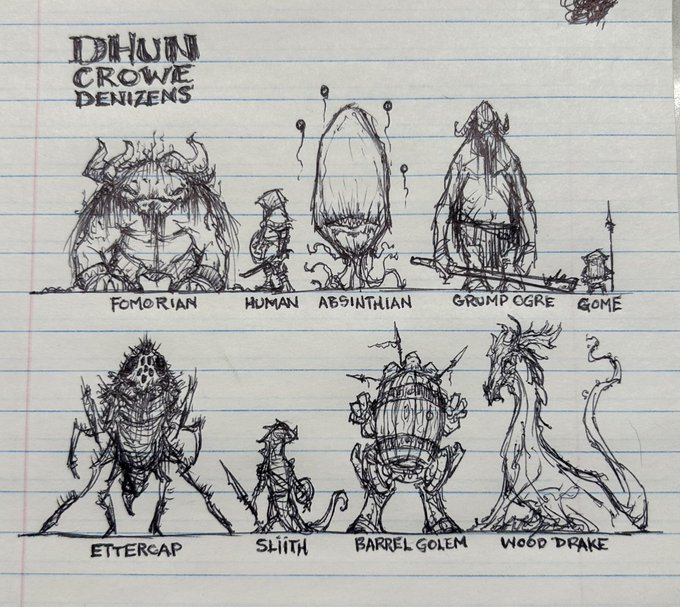 DHUN
CROWE
DENIZENS
FOMORIAN HUMAN ABSINTHIAN GRUMP OGRE GOME
ETTERCAP SLIITH BARREL GOLEM WOOD DRAKE